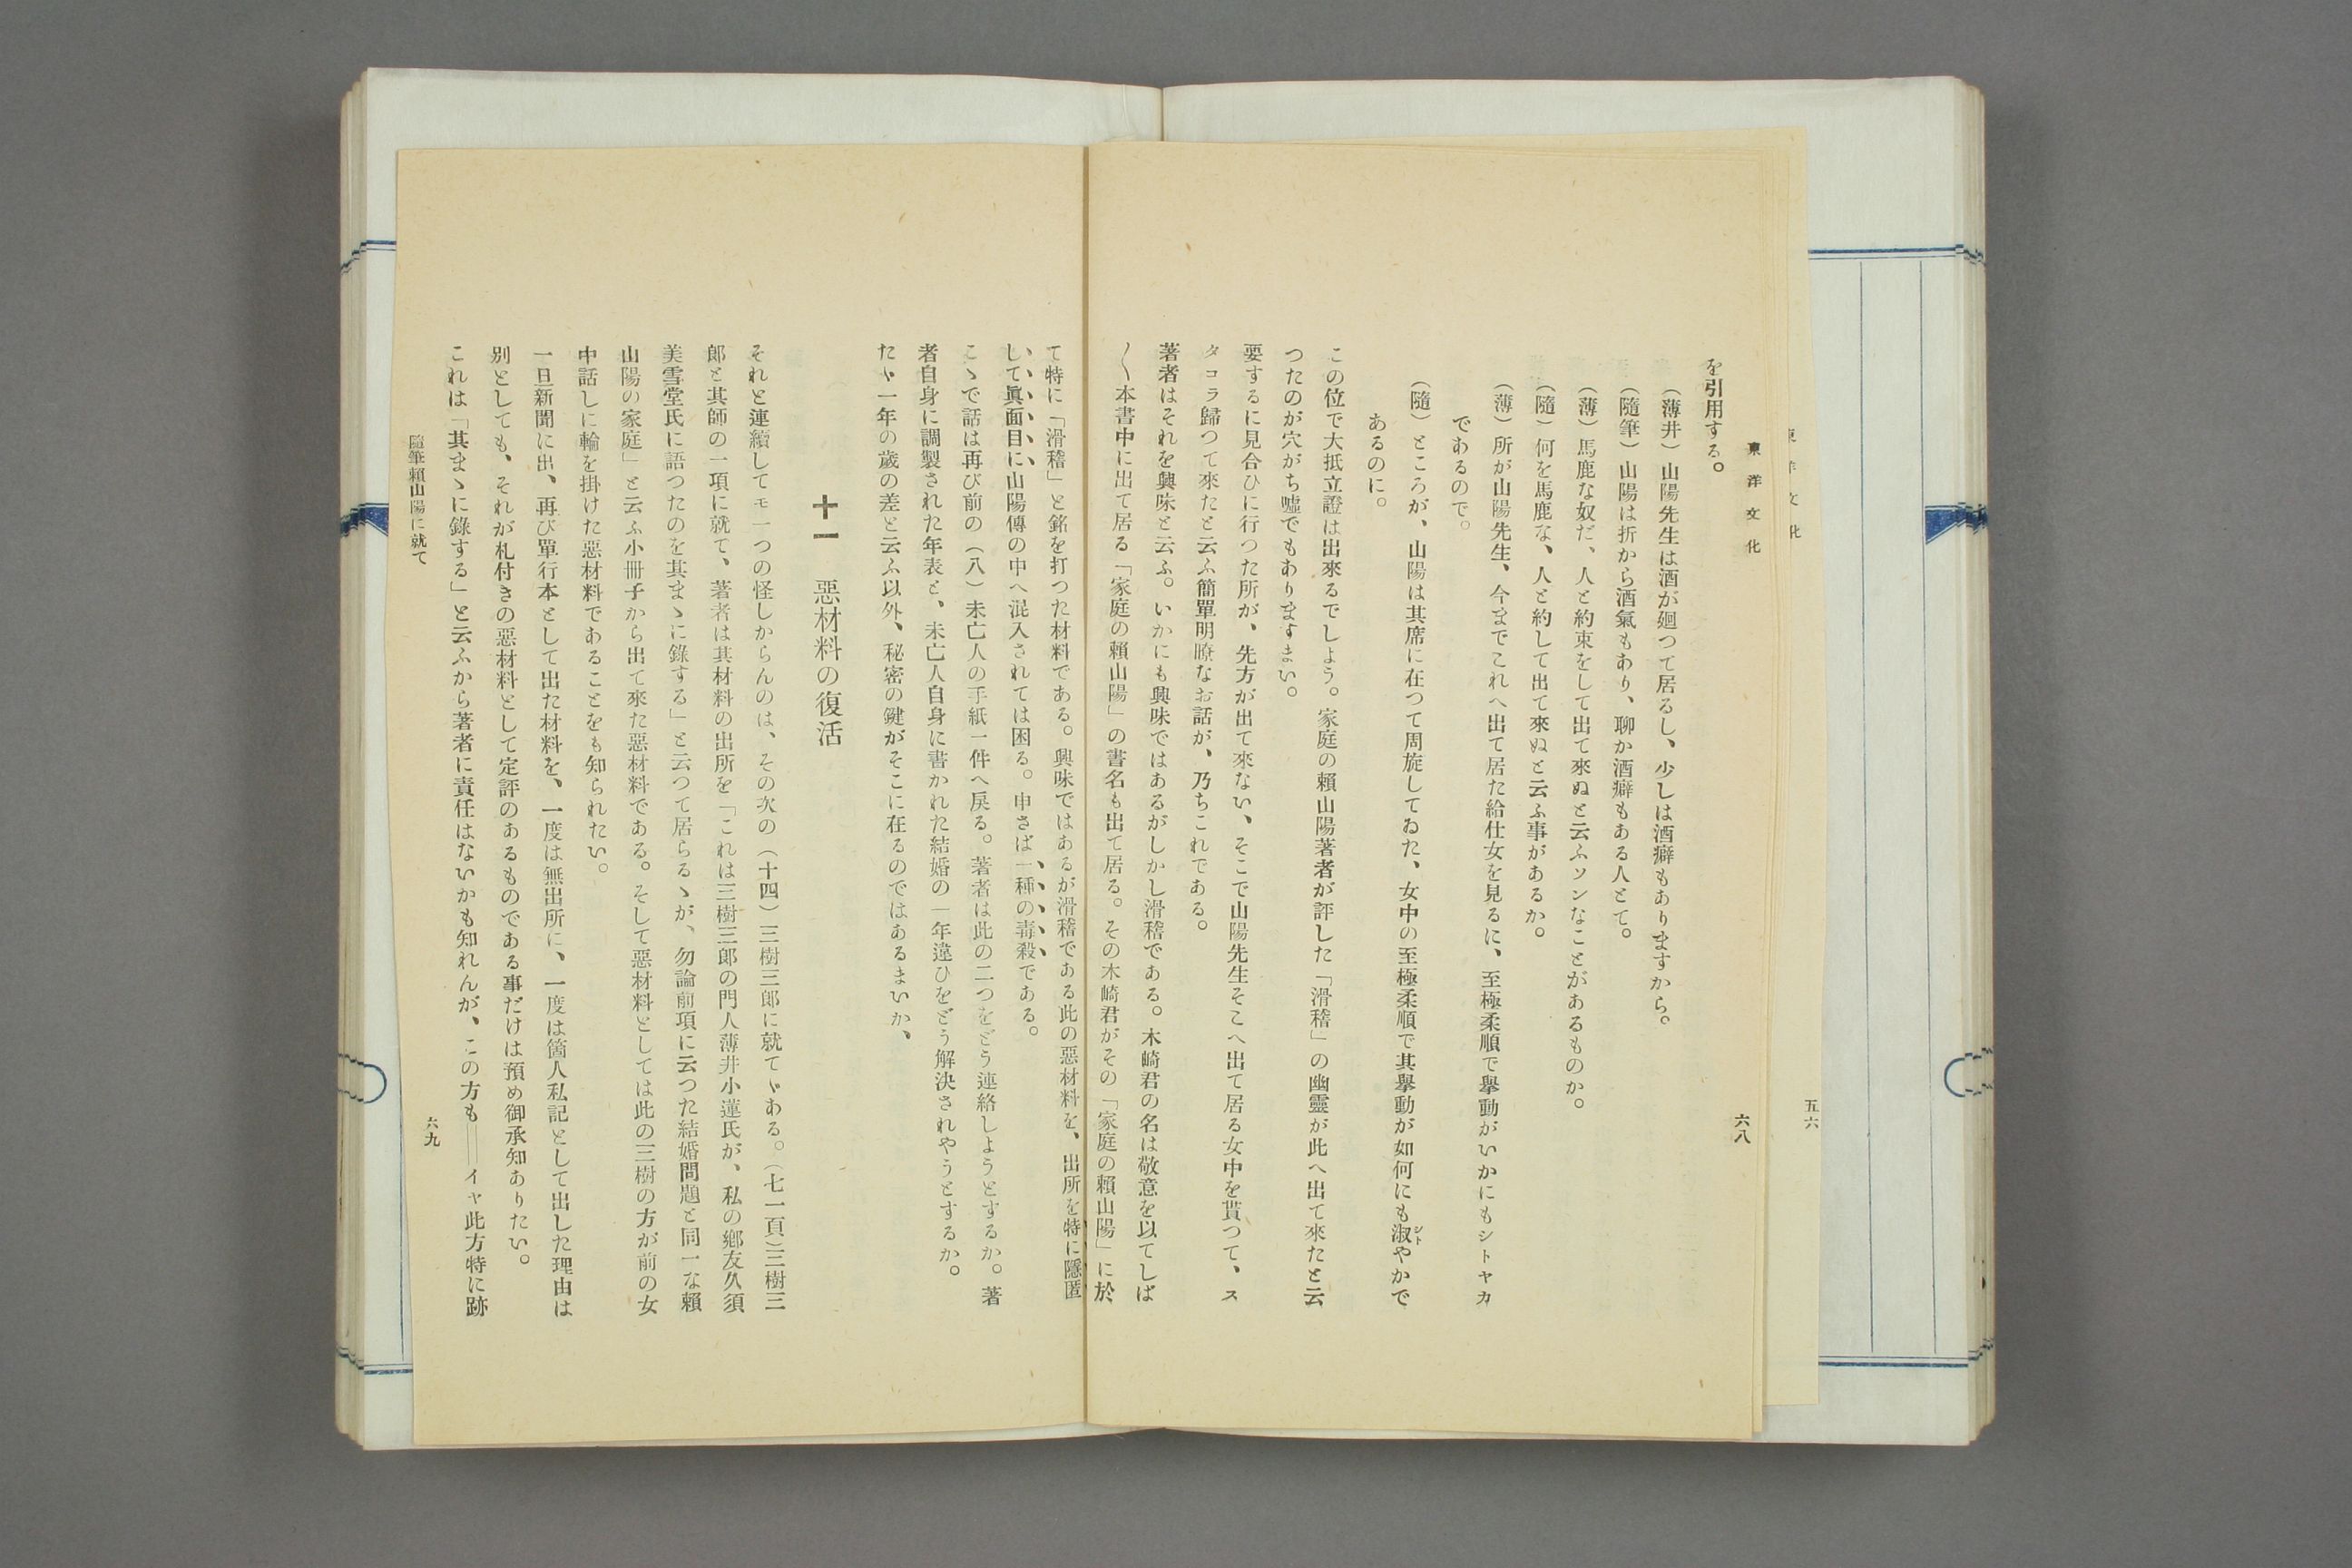 東洋文化
五六
東洋文化
六八
を引用する。
（薄井）山陽先生は酒が廻つて居るし、少しは酒癖もありますから。
（隨筆）山陽は折から酒氣もあり、聊か酒癖もある人とて。
（薄）馬鹿な奴だ、人と約束をして出て來ぬと云ふソンなことがあるものか。
（隨）何を馬鹿な、人と約して出て來ぬと云ふ事があるか。
（薄）所が山陽先生、今までこれへ出て居た給仕女を見るに、至極柔順で擧動がいかにもシトヤカ
であるので。
（隨）ところが、山陽は其席に在つて周旋してゐた、女中の至極柔順で其擧動が如何にも淑やかで
シト
あるのに。
この位で大抵立證は出來るでしよう。家庭の賴山陽著者が評した「滑稽」の幽靈が此へ出て來たと云
つたのが穴がち噓でもありますまい。
要するに見合ひに行つた所が、先方が出て來ない、そこで山陽先生そこへ出て居る女中を貰つて、ス
タコラ歸つて來たと云ふ簡單明瞭なお話が、乃ちこれである。
著者はそれを興味と云ふ。いかにも興味ではあるがしかし滑稽である。木崎君の名は敬意を以てしば
〱本書中に出て居る「家庭の賴山陽」の書名も出て居る。その木崎君がその「家庭の賴山陽」に於
て特に「滑稽」と銘を打つた材料である。興味ではあるが滑稽である此の惡材料を、出所を特に隱匿
して眞面目に山陽傳の中へ混入されては困る。申さば一種の毒殺である。
こゝで話は再び前の（八）未亡人の手紙一件へ戾る。著者は此の二つをどう連絡しようとするか。著
者自身に調製された年表と、未亡人自身に書かれた結婚の一年違ひをどう解決されやうとするか。
たゞ一年の歲の差と云ふ以外、秘密の鍵がそこに在るのではあるまいか、
十一　惡材料の復活
それと連續してモ一つの怪しからんのは、その次の（十四）三樹三郎に就てゞある。（七一頁）三樹三
郎と其師の一項に就て、著者は其材料の出所を「これは三樹三郎の門人薄井小蓮氏が、私の鄕友久須
美雪堂氏に語つたのを其まゝに錄する」と云つて居らるゝが、勿論前項に云つた結婚問題と同一な賴
山陽の家庭」と云ふ小冊子から出て來た惡材料である。そして惡材料としては此の三樹の方が前の女
中話しに輪を掛けた惡材料であることをも知られたい。
一旦新聞に出、再び單行本として出た材料を、一度は無出所に、一度は箇人私記として出した理由は
別としても、それが札付きの惡材料として定評のあるものである事だけは預め御承知ありたい。
これは「其まゝに錄する」と云ふから著者に責任はないかも知れんが、この方も――イヤ此方特に跡
隨筆賴山陽に就て
六九